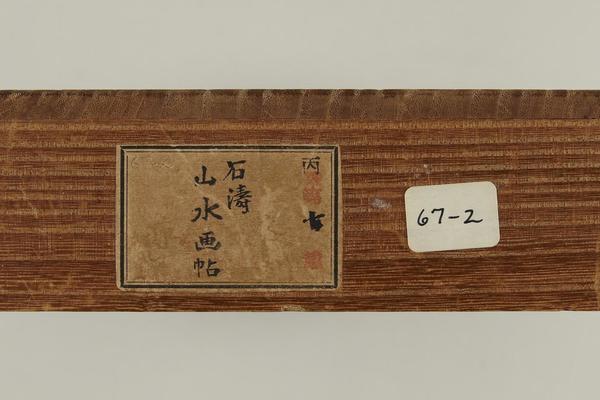 丙
七
石濤
山水画帖
67-2